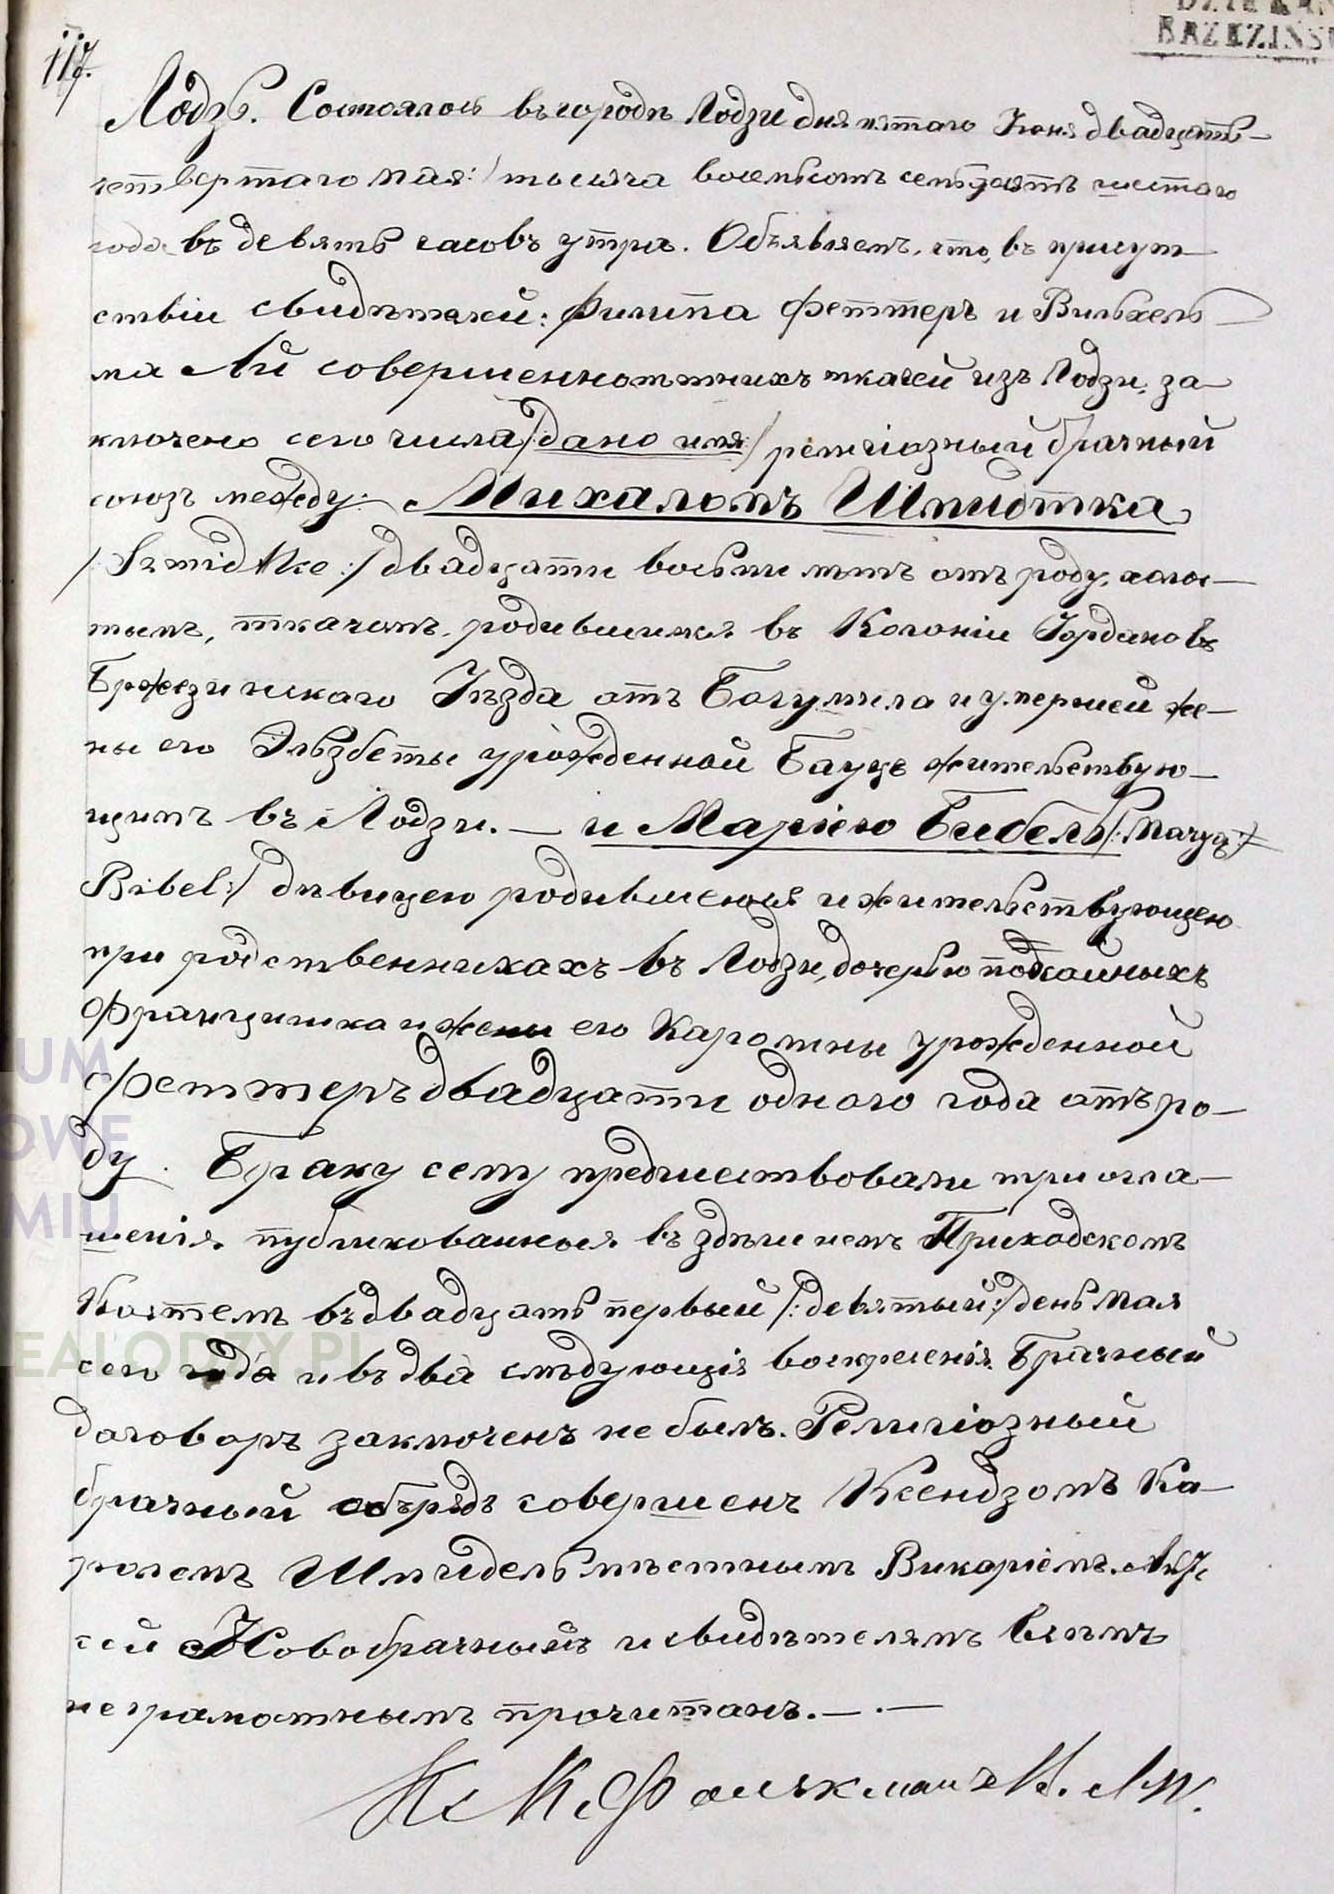 117.
DZIEKAN
BRZEZIŃS
Лодзь. Состоялось въ городѣ Лодзи дня пятаго Іюня двадцать
четвертаго мая:/ тысяча восемьсотъ семьдесятъ шестаго
года въ девять часовъ утра. Объявляемъ, что, въ присут-
ствіи свидѣтелей: Филипа Феттеръ и Вильхель-
ма Ай совершеннолѣтнихъ ткачей изъ Лодзи, за-
ключено сего числа /:дано имя:/ религіозный брачный
союзъ между: Михаломъ Шмидтка
/:Szmidtke:/ двадцати восьми лѣтъ отъ роду, холос-
тымъ, ткачомъ, родившимся въ Колоніи Іордановъ
Бржезинскаго Уѣзда отъ Богумила и умершей же-
ны его Эльзбеты урожденной Бауцъ жительствую-
щимъ въ Лодзи. — и Маріею Бибель /:
Bibel:/ дѣвицею родившеюся и жительствующею
при родственникахъ въ Лодзи, дочерью покойныхъ
Францишка и жены его Каролины урожденной
Феттеръ двадцати одного года отъ ро-
ду. Браку сему предшествовали три огла-
шенія публикованныя въ здѣшнемъ Приходскомъ
Костелѣ въ двадцать первый /:девятый:/ день Мая
сего года и въ два слѣдующія воскресенія. Брачный
договоръ заключенъ не былъ. Религіозный
брачный обрядъ совершенъ Ксендзомъ Ка-
ролемъ Шмидель мѣстнымъ Викаріемъ. Актъ
сей Новобрачнымъ и свидѣтелямъ всѣмъ
неграмотнымъ прочитанъ. —.—
UM
OWE
MIU
EALODZY.PL